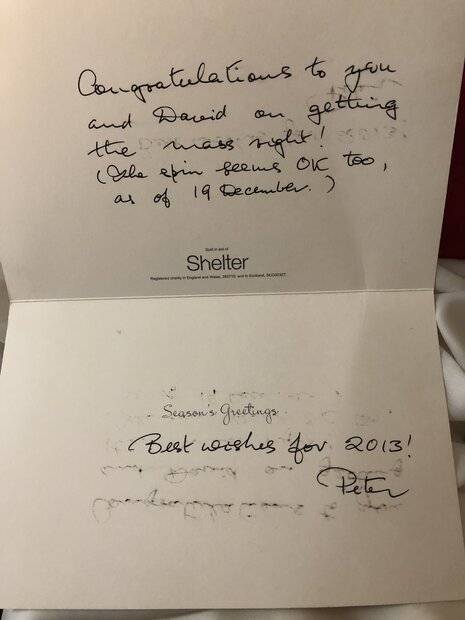 Congratulations to you
and David on getting
the mass right!
(The spin seems OK too,
as of 19 December.)
Sold in aid of
Shelter
Registered charity in England and Wales, 263710, and in Scotland, SC002327.
Season's Greetings
Best wishes for 2013!
Peter